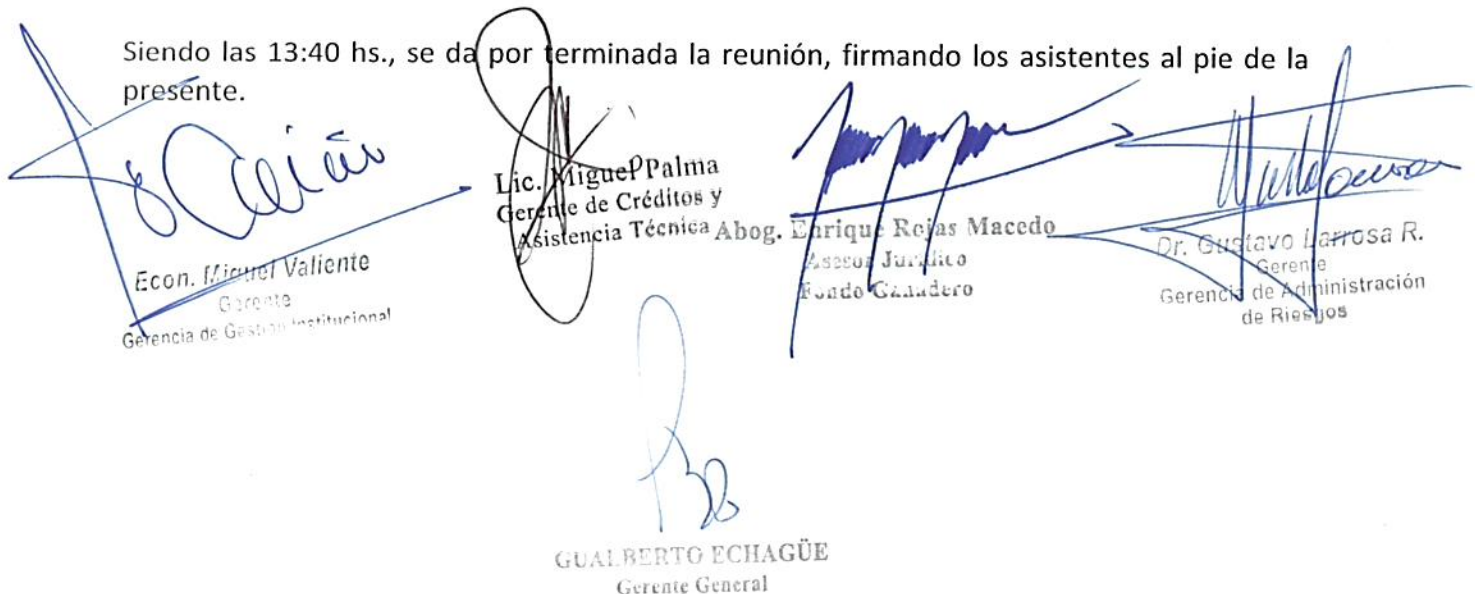 Siendo las 13:40 hs., se da por terminada la reunión, firmando los asistentes al pie de la
presente.
Econ. Miguel Valiente
Gerente
Gerencia de Gestión Institucional
Lic. Miguel Palma
Gerente de Créditos y
Asistencia Técnica
Abog. Enrique Rojas Macedo
Asesor Jurídico
Fondo Ganadero
Dr. Gustavo Larrosa R.
Gerente
Gerencia de Administración
de Riesgos
GUALBERTO ECHAGÜE
Gerente General